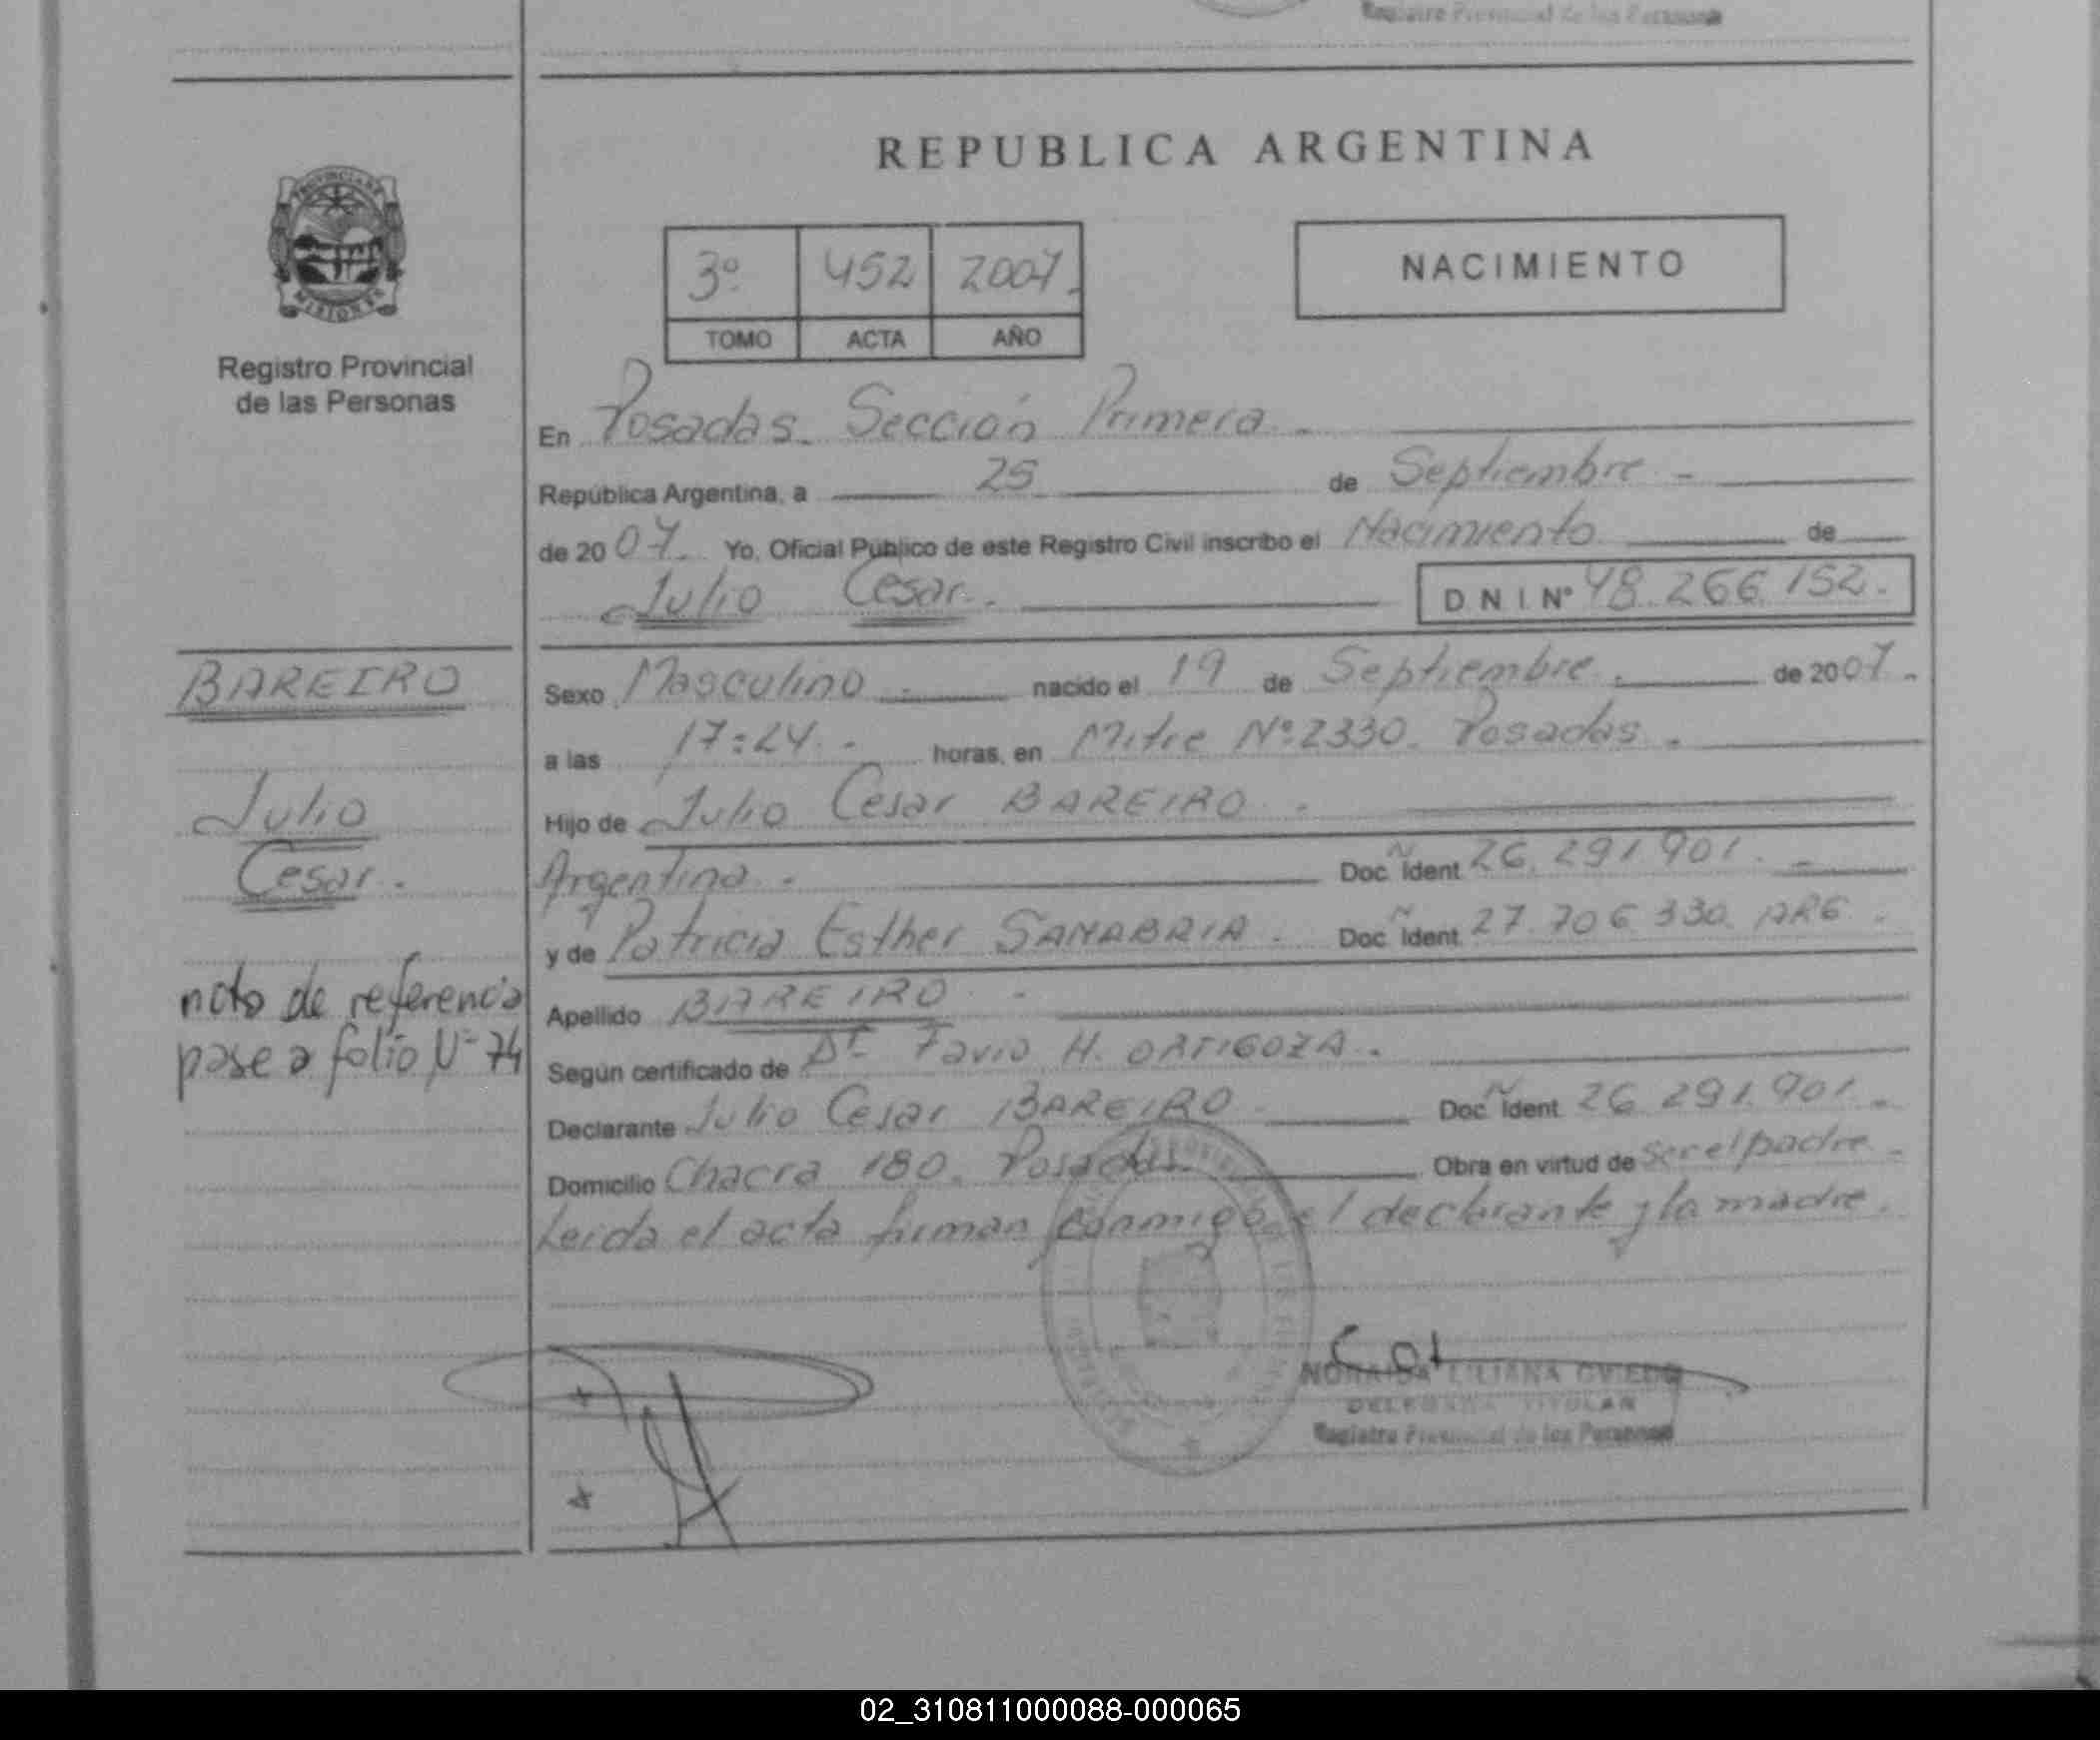 Registro Provincial de las Personas
REPUBLICA ARGENTINA
PROVINCIA DE
MISIONES
Registro Provincial
de las Personas
3º 452 2007.
TOMO ACTA AÑO
NACIMIENTO
En Posadas. Sección Primera.
República Argentina, a 25 de Septiembre -
de 2007. Yo, Oficial Público de este Registro Civil inscribo el Nacimiento de
Julio Cesar. DNI Nº 48.266.152.
BAREIRO
Julio
Cesar.
nota de referencia
pase a folio Nº 74
Sexo Masculino nacido el 19 de Septiembre. de 2007.
a las 17:24. horas, en Mitre Nº 2330. Posadas.
Hijo de Julio Cesar BAREIRO.
Argentina. Doc. Ident. 26.291.901.
y de Patricia Esther SANABRIA. Doc. Ident. 27.706.330. ARG.
Apellido BAREIRO
Según certificado de Dr. Favio H. ORTIGOZA.
Declarante Julio Cesar BAREIRO Doc. Ident. 26.291.901.
Domicilio Chacra 180. Posadas. Obra en virtud de ser el padre
Leida el acta firman conmigo el declarante y la madre.
LILIANA OVIEDO
DELEGADA TITULAR
Registro Provincial de las Personas
02_310811000088-000065